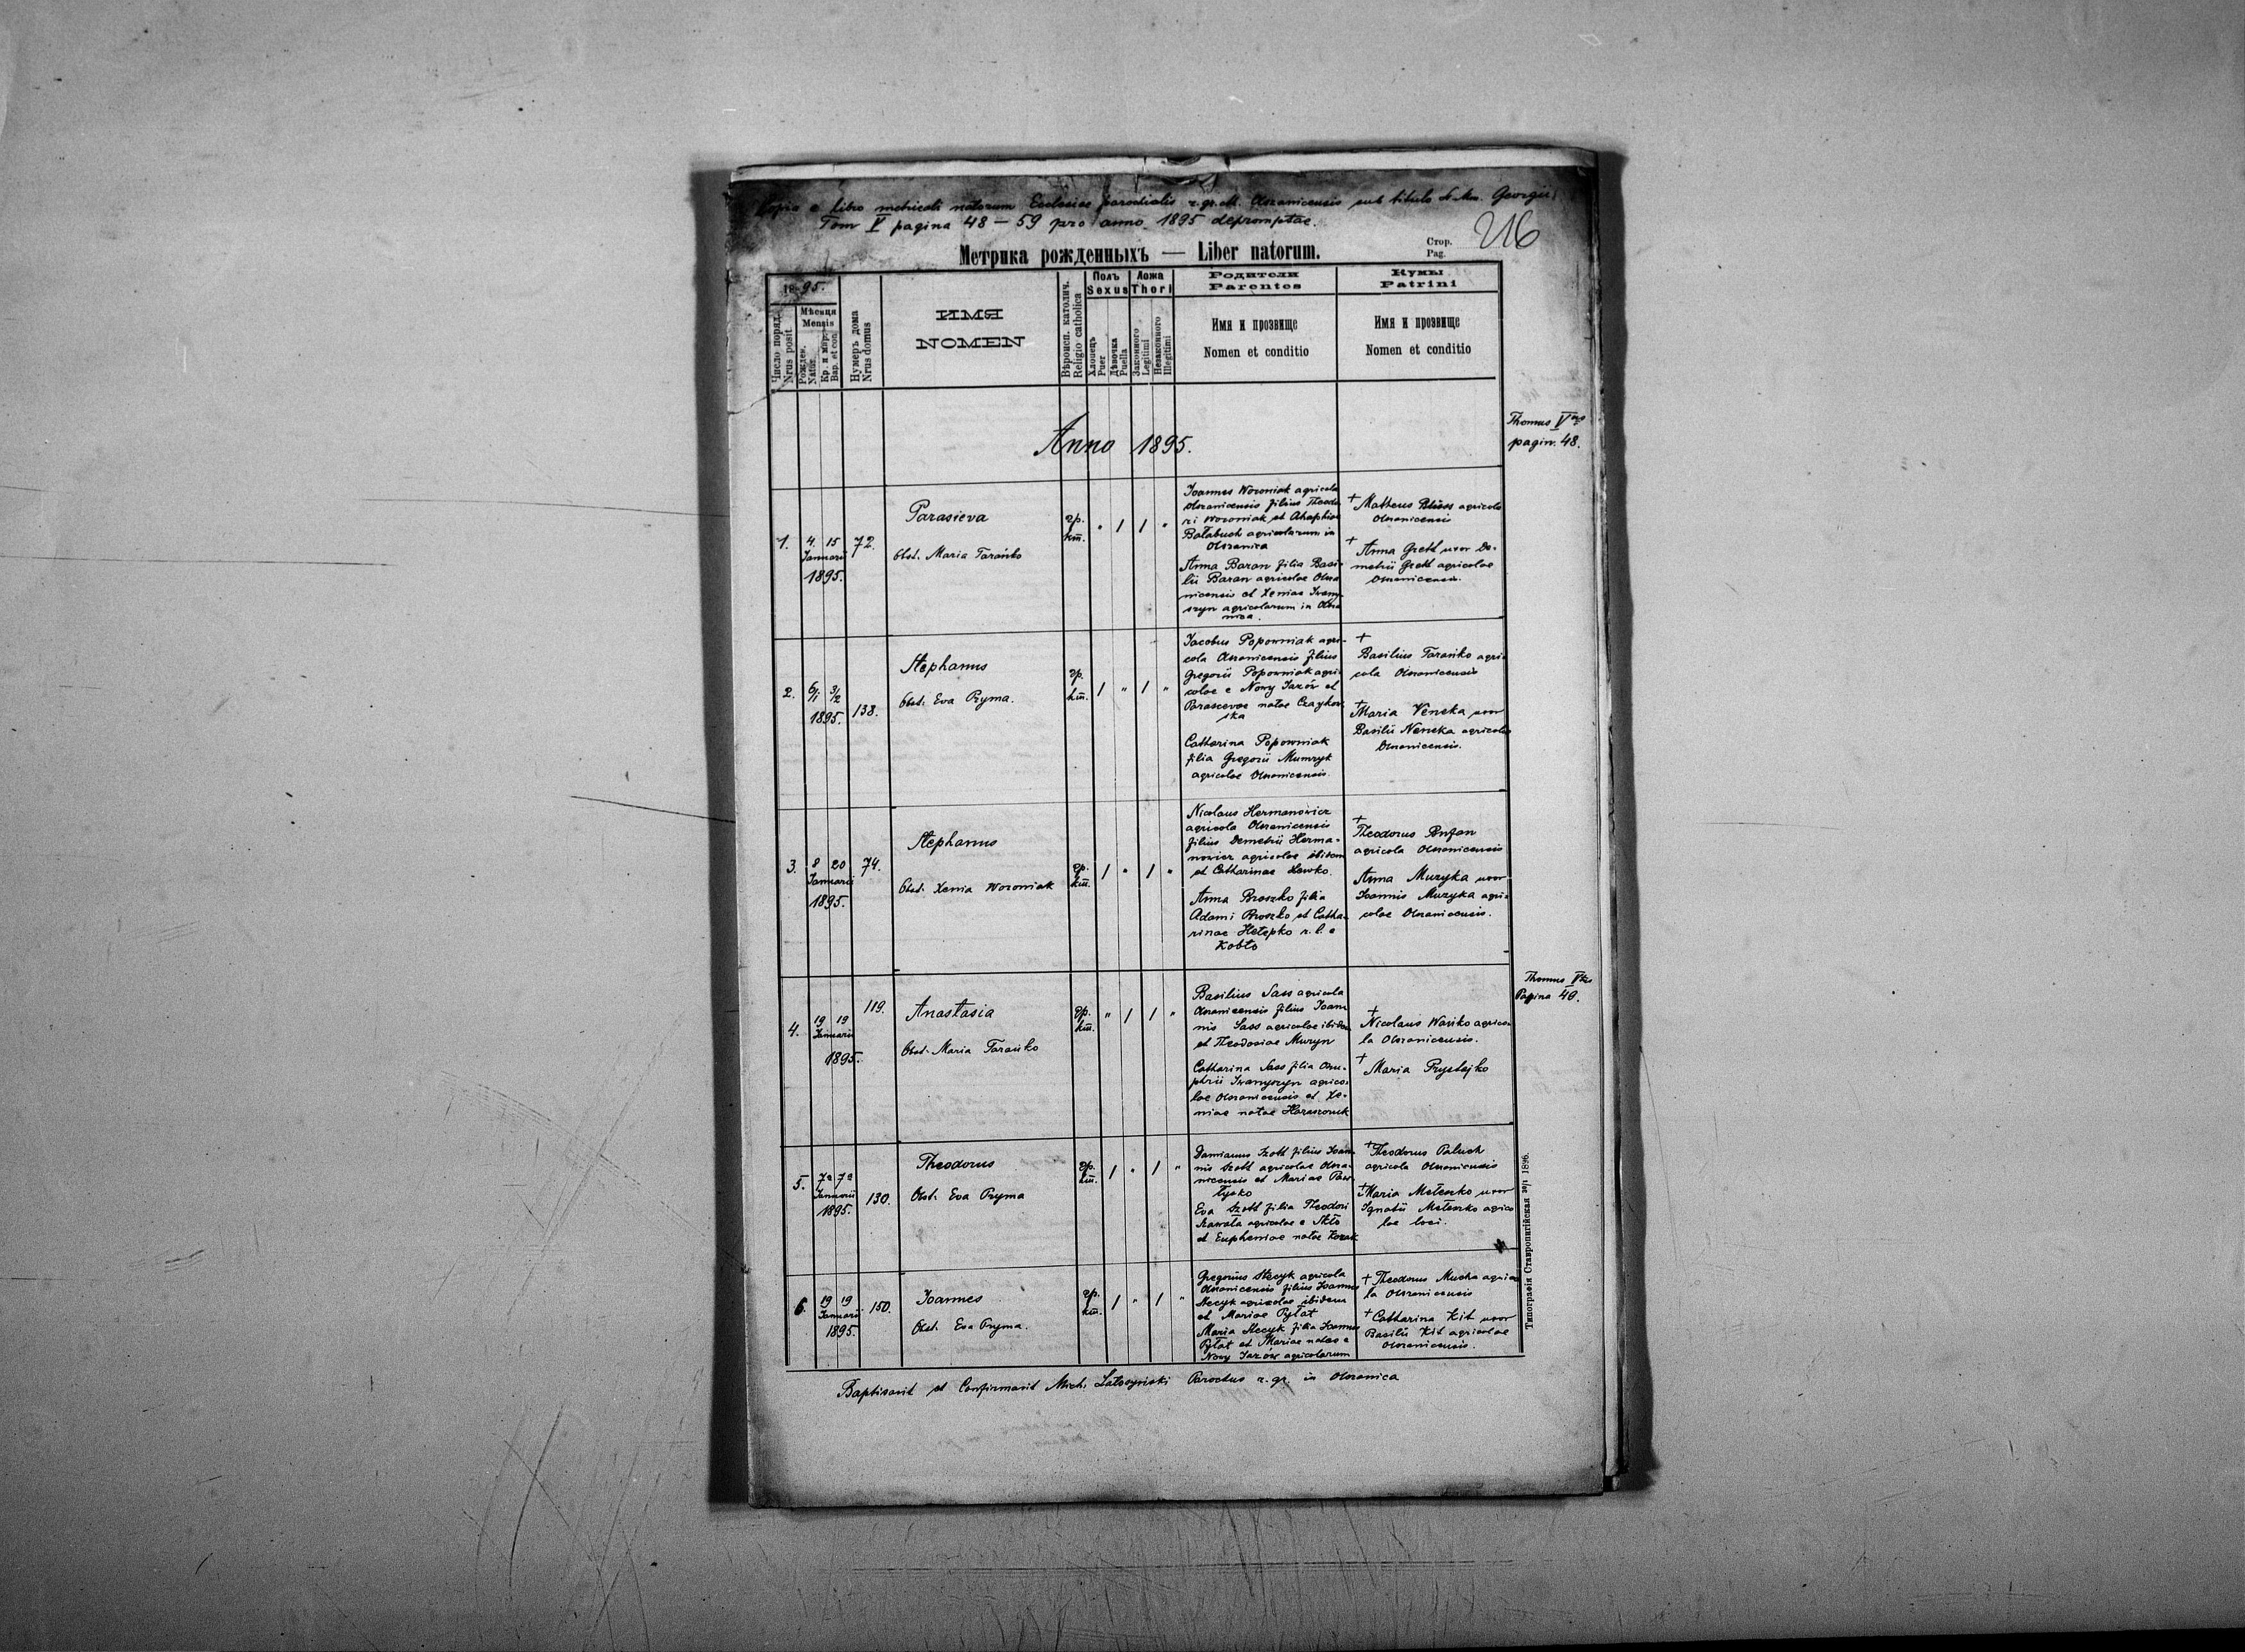 Copia e libro metricali natorum Ecclesiae parochialis r. gr. cat. Olszanicensis sub titulo S. Mr. Georgii
Tom V pagina 48 — 59 pro anno 1895 depromptae.
216
Метрика рожденныхъ — Liber natorum.
Стор.
Pag.
1895.
Число поряд.
Nrus posit.
Мѣсяця
Mensis
Рожден.
Natus
Кр. и мѵр.
Bap. et con.
Нумеръ дома
Nrus domus
ИМЯ
NOMEN
Вѣроисп. католич.
Religio catholica
Полъ
Sexus
Хлопецъ
Puer
Дѣвочка
Puella
Ложа
Thori
Законного
Legitimi
Незаконного
Illegitimi
Родители
Parentes
Имя и прозвище
Nomen et conditio
Кумы
Patrini
Имя и прозвище
Nomen et conditio
Anno 1895.
Thomus V
pagin. 48.
1.
4. 15
Januarii
1895.
72.
Parasieva
Obst. Maria Tarańko
гр.
кт.
" / / "
Joannes Woroniak agricola
Olszanicensis filius Theodo
ri Woroniak et Ahaphiae
Bałabuch agricolarum in
Olszanica
Anna Baran filia Basi-
lii Baran agricolae Olsza
nicensis et Xeniae Iwany
szyn agricolarum in Olsza
nica.
+ Matheus agricola
Olszanicensis
+ Anna Grett uxor De-
metrii Grett agricolae
Olszanicensis.
2.
6/1 3/2
1895.
138.
Stephanus
Obst. Eva Pryma.
гр.
кт.
/ " / "
Jacobus Popowniak agri-
cola Olszanicensis filius
Gregorii Popowniak agri
colae e Nowy Jazów et
Parascevae natae Czaykow
ska
Catharina Popowniak
filia Gregorii Mumryk
agricolae Olszanicensis.
+
Basilius Tarańko agri-
cola Olszanicensis
+ Maria Neneka uxor
Basilii Neneka agricolae
Olszanicensis.
3.
8 20
Januarii
1895.
74.
Stephanus
Obst. Xenia Woroniak
гр.
кт.
/ " / "
Nicolaus Hermanowicz
agricola Olszanicensis
filius Demetrii Herma-
nowicz agricolae ibidem
et Catharinae Lewko.
Anna Proszko filia
Adami Proszko et Catha
rinae Hetepko r. l. e
Kobło
+
Theodorus
agricola Olszanicensis
Anna Muzyka uxor
Joannis Muzyka agri-
colae Olszanicensis.
Thomus V
Pagina 49.
4.
19 19
Januarii
1895.
119.
Anastasia
Obst. Maria Tarańko
гр.
кт.
" / / "
Basilius Sass agricola
Olszanicensis filius Joan
nis Sass agricolae ibidem
et Theodosiae Muryn
Catharina Sass filia Onu-
phrii Iwanyszyn agrico-
lae Olszanicensis et Xe-
niae natae Haraszczuk
+
Nicolaus Waśko agrico-
la Olszanicensis.
+
Maria Prystajko
5.
7a 7a
Januarii
1895.
130.
Theodorus
Obst. Eva Pryma
гр.
кт.
/ " / "
Damianus Szott filius Joan
nis Szott agricolae Olsza-
nicensis et Mariae Paw
łysko
Eva Szott filia Theodori
Szawała agricolae e Skło
et Euphemiae natae Kozak
+ Theodorus Paluch
agricola Olszanicensis
+ Maria Mełeszko uxor
Ignatii Mełeszko agrico
lae loci.
6.
19 19
Januarii
1895.
150.
Joannes
Obst. Eva Pryma.
гр.
кт.
/ " / "
Gregorius Stecyk agricola
Olszanicensis filius Joannis
Stecyk agricolae ibidem
et Mariae Pyłat
Maria Stecyk filia Joannis
Pyłat et Mariae natae e
Nowy Jazów agricolarum
+ Theodorus Mucha agrico
la Olszanicensis
+ Catharina Kit uxor
Basilii Kit agricolae
Olszanicensis.
Типографія Ставропигійская 1896.
Baptisavit et Confirmavit Mich. Łatoszyński Parochus r. gr. in Olszanica